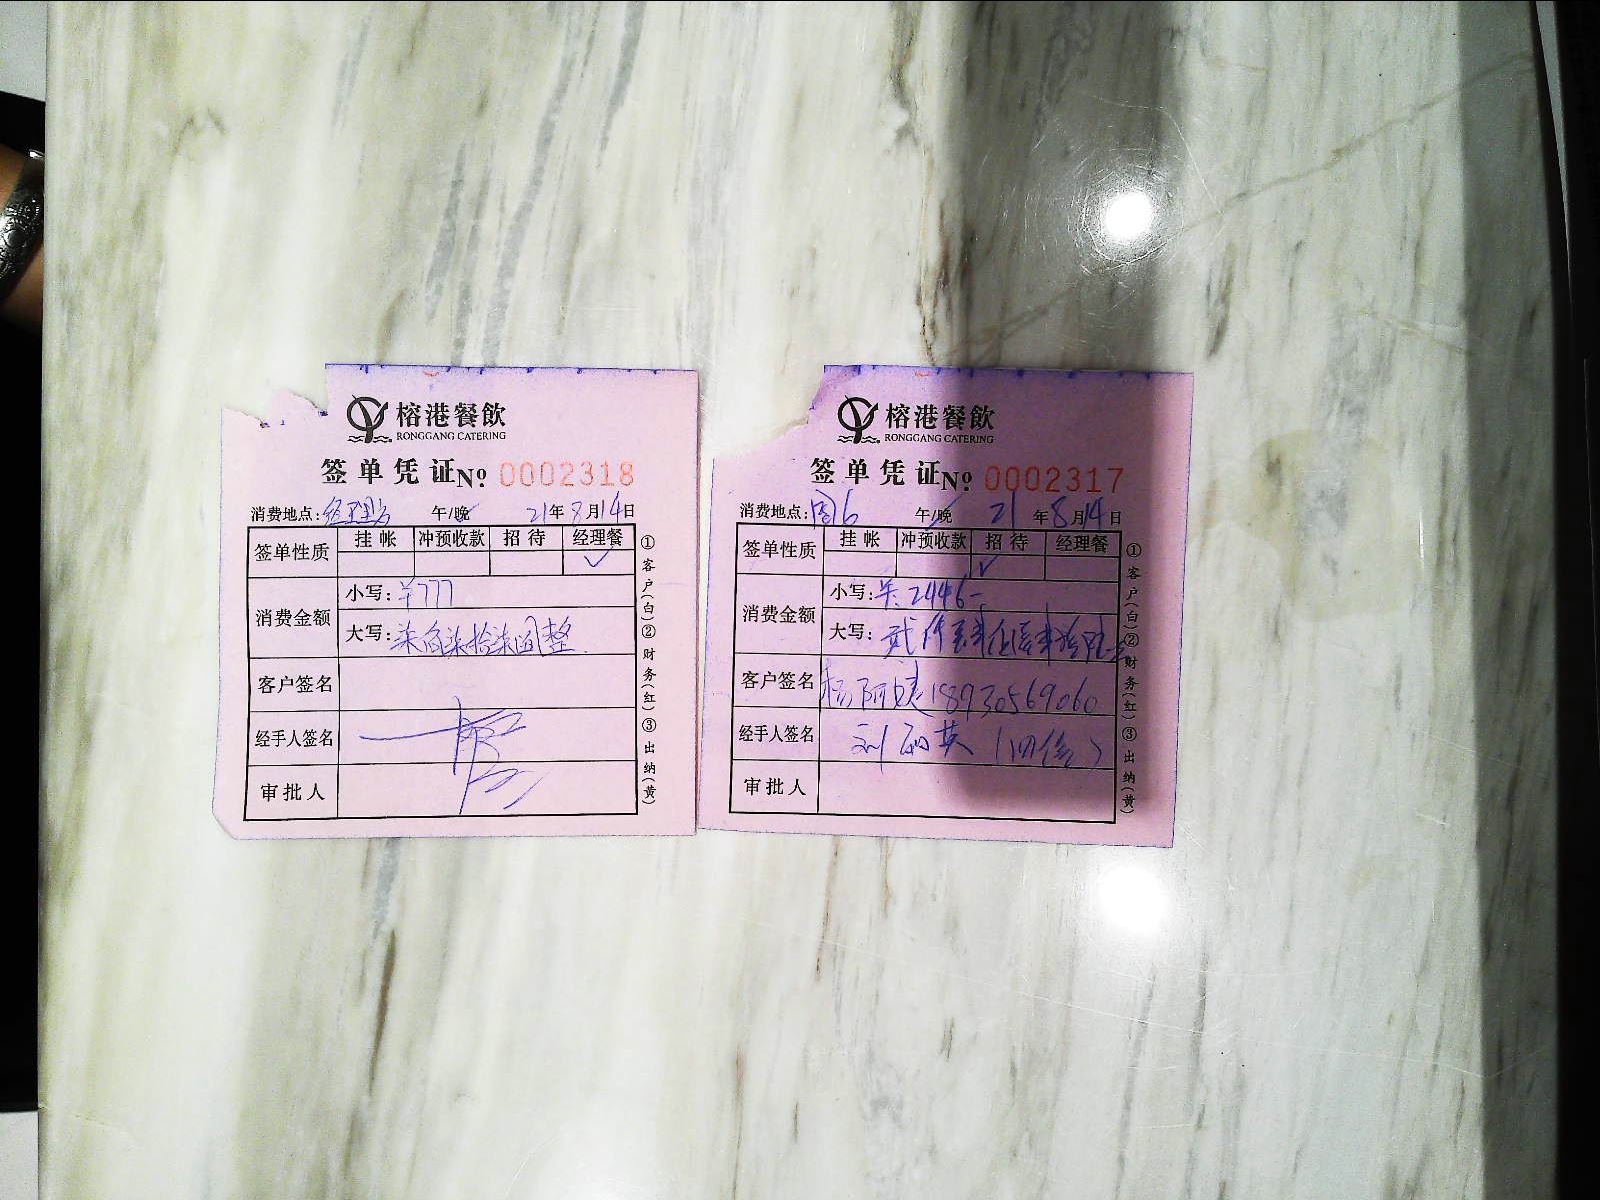 榕港餐飲
RONGGANG CATERING
签单凭证 No 0002318
消费地点: 午/晚 21年8月14日
签单性质 挂帐 冲预收款 招待 经理餐
✓
消费金额
小写: ¥777
大写: 柒佰柒拾柒圆整
客户签名
经手人签名
审批人
①客户(白)②财务(红)③出纳(黄)
榕港餐飲
RONGGANG CATERING
签单凭证 No 0002317
消费地点: 6 午/晚 21年8月14日
签单性质 挂帐 冲预收款 招待 经理餐
✓
消费金额
小写: ¥: 2446-
大写: 贰仟肆佰肆拾陆
客户签名 杨阿 18930569060
经手人签名 刘丽英
审批人
①客户(白)②财务(红)③出纳(黄)